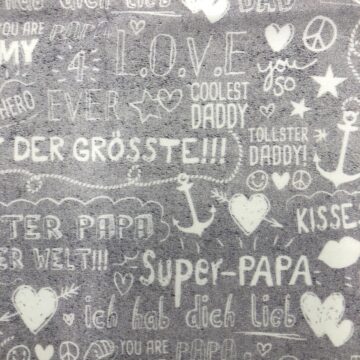 ich hab dich lieb DAD
YOU ARE PAPA
MY 4 L.O.V.E you SO
HERO EVER COOLEST DADDY
TOLLSTER DADDY!
DER GRÖSSTE!!!
TER PAPA KISSE
ER WELT!!!
Super-PAPA
ich hab dich lieb
YOU ARE PAPA